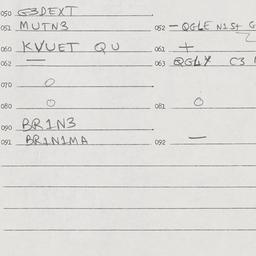 050 G3DEXT
051 MUTN3 052 — QGLE N1St G
060 KVUET QU 061 +
062 — 063 QGLY C3
070 O
080 O 081 O
090 BR1N3
091 BR1N1MA 092 —